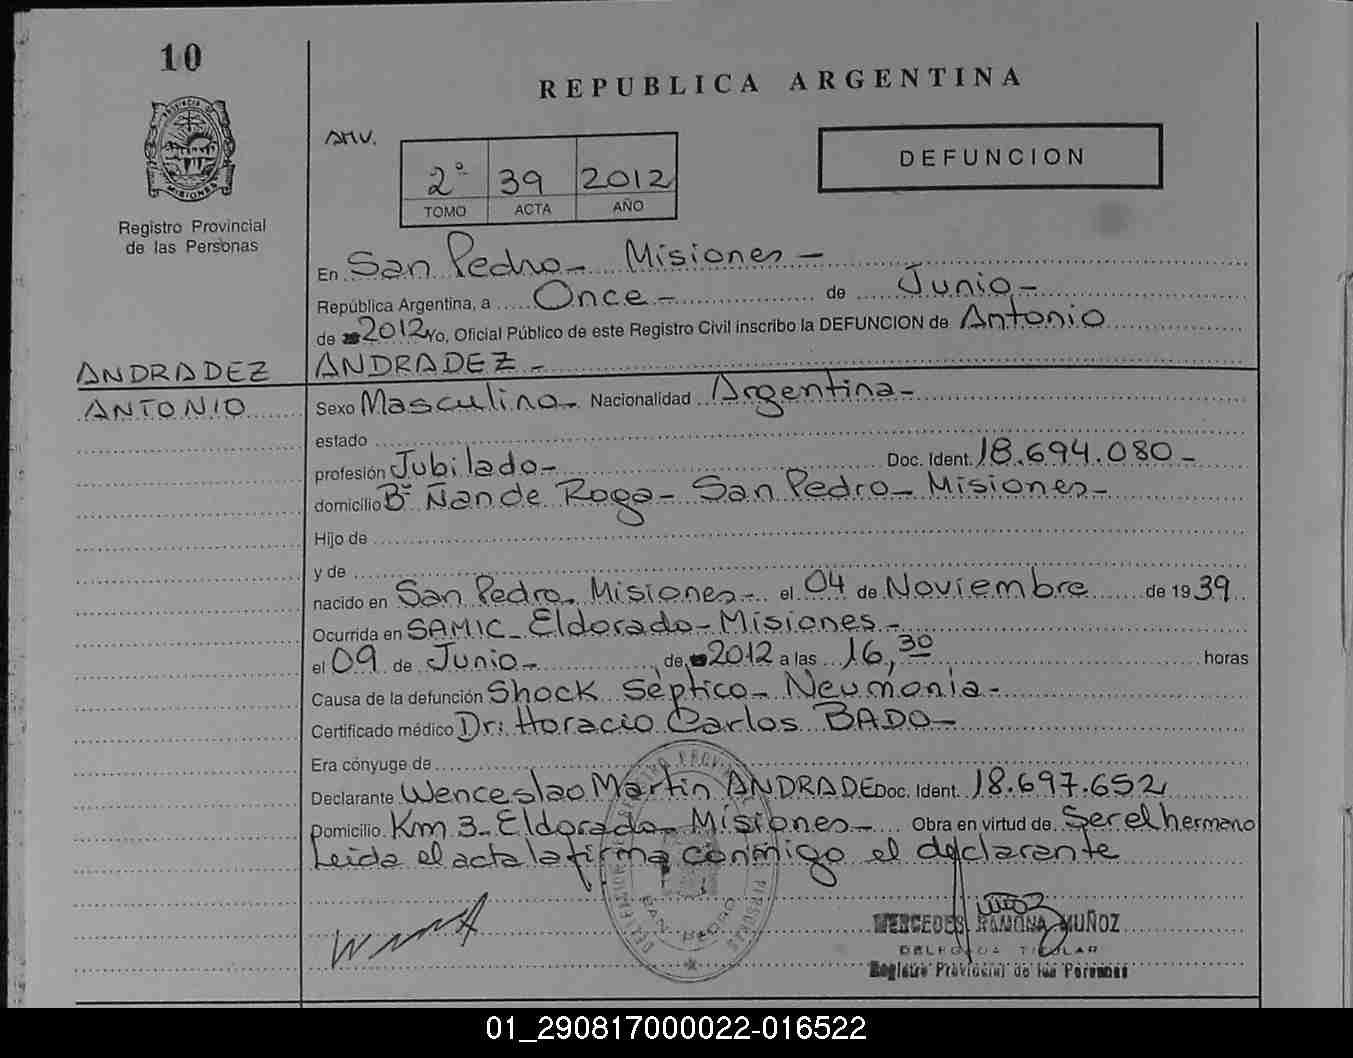 10
REPUBLICA ARGENTINA
2º 39 2012
TOMO ACTA AÑO
DEFUNCION
Registro Provincial
de las Personas
En San Pedro - Misiones -
República Argentina, a Once - de Junio -
de 2012 Yo, Oficial Público de este Registro Civil inscribo la DEFUNCION de Antonio
ANDRADEZ ANDRADEZ -
ANTONIO Sexo Masculino - Nacionalidad Argentina -
estado
profesión Jubilado - Doc. Ident. 18.694.080 -
domicilio Bº Ñande Roga - San Pedro - Misiones -
Hijo de
y de
nacido en San Pedro - Misiones - el 04 de Noviembre de 1939
Ocurrida en SAMIC - Eldorado - Misiones -
el 09 de Junio - de 2012 a las 16,30 horas
Causa de la defunción Shock Séptico - Neumonía -
Certificado médico Dr: Horacio Carlos BADO -
Era cónyuge de
Declarante Wenceslao Martin ANDRADE Doc. Ident. 18.697.652
Domicilio Km 3 - Eldorado - Misiones - Obra en virtud de Ser el hermano
Leida el acta la firma conmigo el declarante
SAN PEDRO
MERCEDES RAMONA MUÑOZ
DELEGADA TITULAR
Registro Provincial de las Personas
01_290817000022-016522